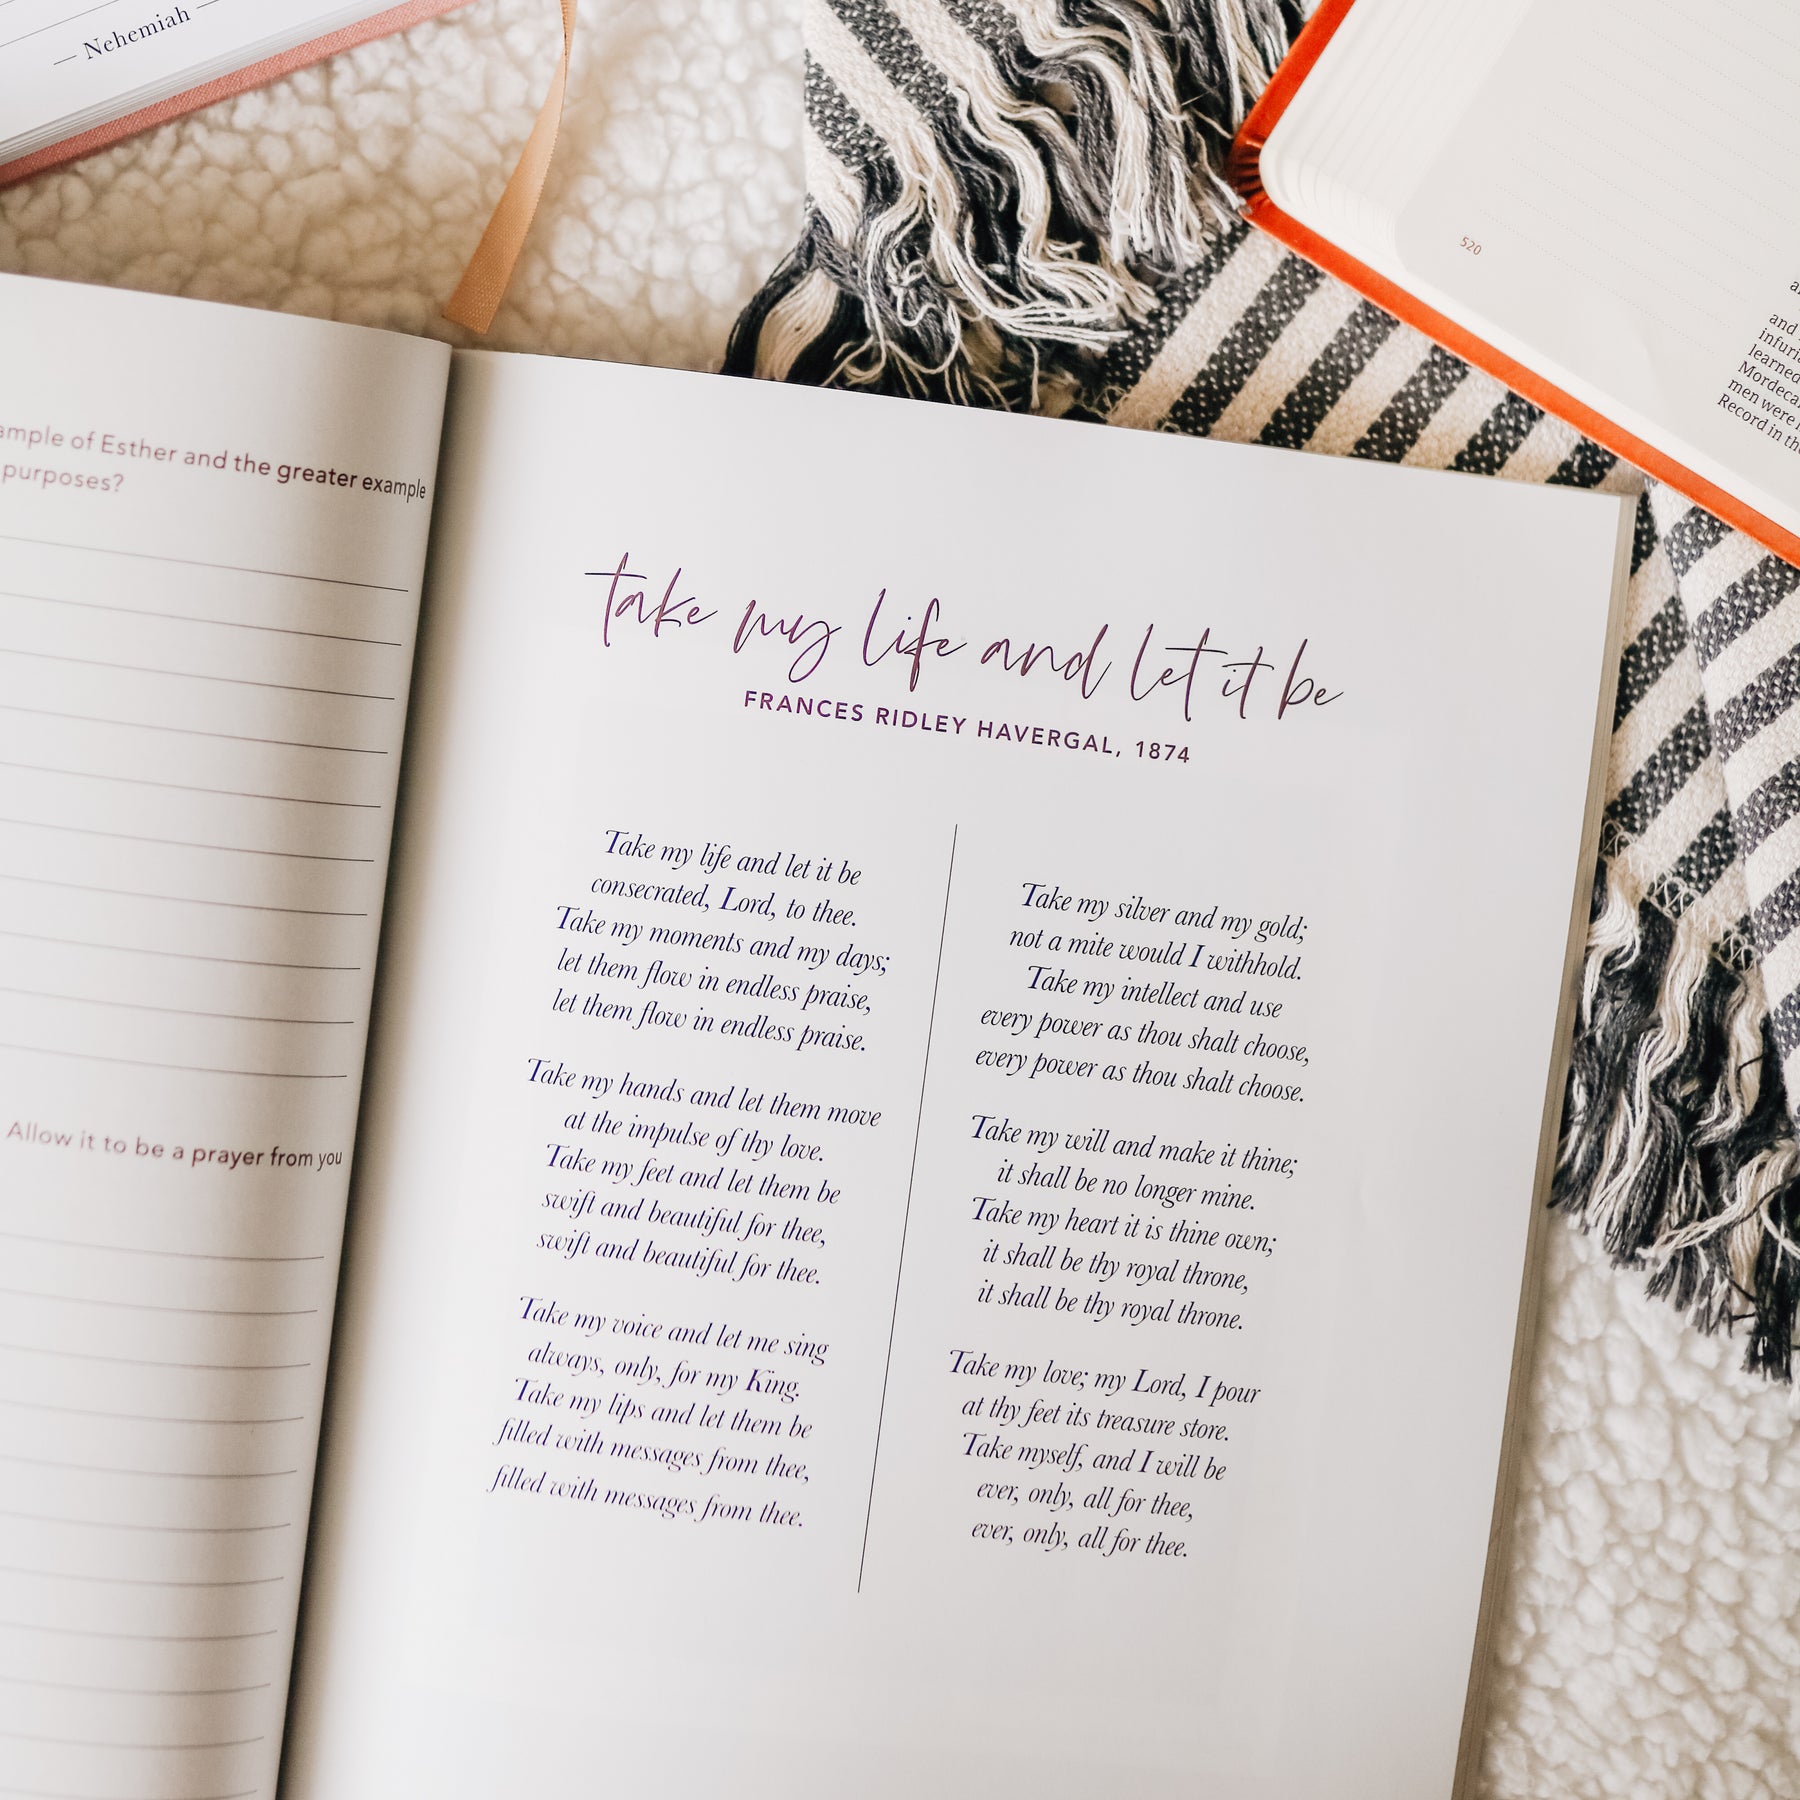 — Nehemiah —
of Esther and the greater example
purposes?
Allow it to be a prayer from you
take my life and let it be
FRANCES RIDLEY HAVERGAL, 1874
Take my life and let it be
consecrated, Lord, to thee.
Take my moments and my days;
let them flow in endless praise,
let them flow in endless praise.
Take my hands and let them move
at the impulse of thy love.
Take my feet and let them be
swift and beautiful for thee,
swift and beautiful for thee.
Take my voice and let me sing
always, only, for my King.
Take my lips and let them be
filled with messages from thee,
filled with messages from thee.
Take my silver and my gold;
not a mite would I withhold.
Take my intellect and use
every power as thou shalt choose,
every power as thou shalt choose.
Take my will and make it thine;
it shall be no longer mine.
Take my heart it is thine own;
it shall be thy royal throne,
it shall be thy royal throne.
Take my love; my Lord, I pour
at thy feet its treasure store.
Take myself, and I will be
ever, only, all for thee,
ever, only, all for thee.
520
and
learned
men were
Record in